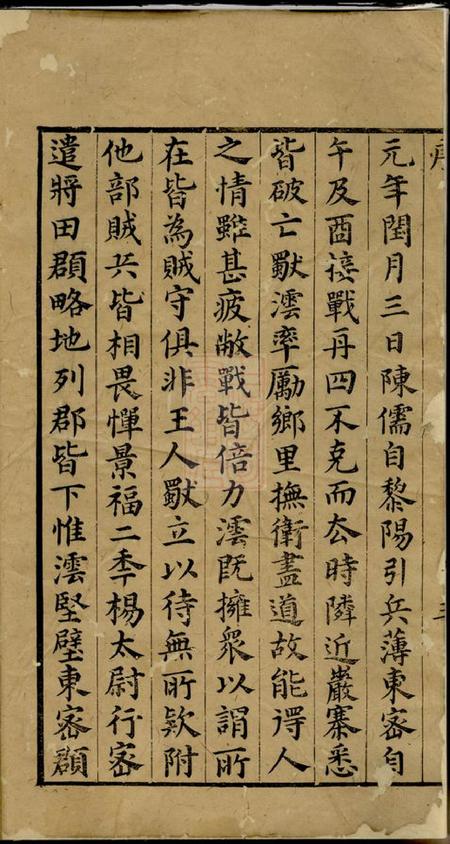 元年閏月三日陳儒自黎陽引兵薄東密自
午及酉接戰再四不克而去時隣近巖寨悉
皆破亡獸澐率厲鄉里撫衛盡道故能得人
之情雖甚疲敝戰皆倍力澐既擁衆以謂所
在皆為賊守俱非王人獸立以待無所欵附
他部賊兵皆相畏憚景福二季楊太尉行密
遣將田頵略地列郡皆下惟澐堅壁東密頵